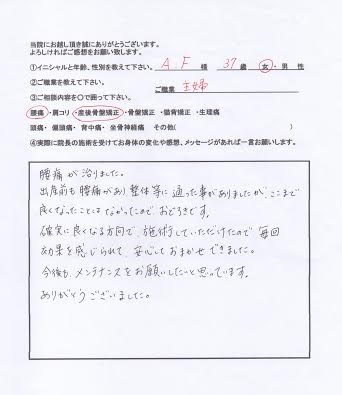 当院にお越し頂き誠にありがとうございます。
よろしければご感想をお願い致します。
①イニシャルと年齢、性別を教えて下さい。 A.F 様 37歳 女・男 性
②ご職業を教えて下さい。 ご職業 主婦
③ご相談内容を〇で囲って下さい。
腰痛・肩コリ・産後骨盤矯正・骨盤矯正・猫背矯正・生理痛
頭痛・偏頭痛・背中痛・坐骨神経痛 その他( )
④実際に院長の施術を受けてお身体の変化や感想、メッセージがあれば一言お願いします。
腰痛が治りました。
出産前も腰痛があり、整体等に通った事がありましたが、ここまで
良くなったことはなかったので、おどろきです。
確実に良くなる方向で、施術していただけたので毎回
効果を感じられて、安心しておまかせできました。
今後も、メンテナンスをお願いしたいと思っています。
ありがとうございました。